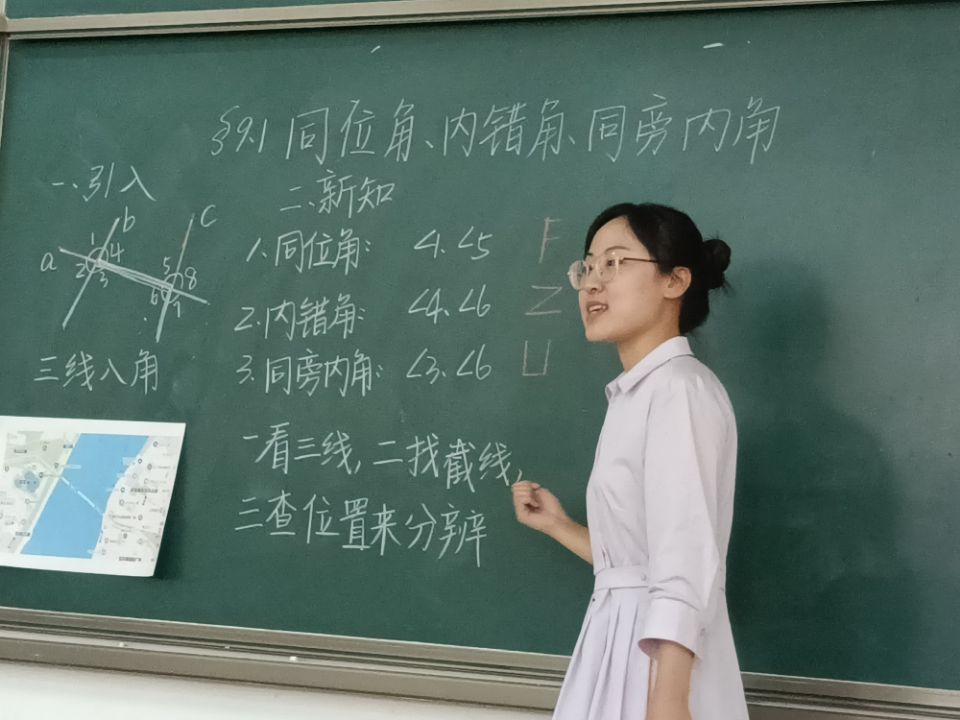 §9.1 同位角、内错角、同旁内角
一、引入
a b c
1 4
2 3
5 8
6 7
三线八角
二、新知
1.同位角: ∠1.∠5 F
2.内错角: ∠4.∠6 Z
3.同旁内角: ∠3.∠6 U
一看三线,二找截线,
三查位置来分辨